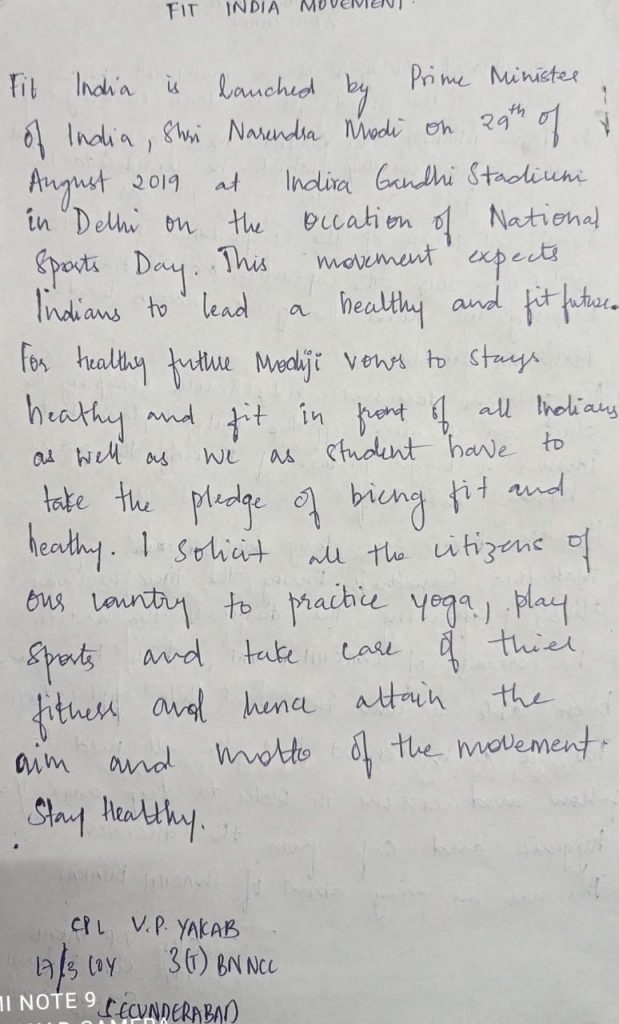 FIT INDIA MOVEMENT
Fit India is lanched by Prime Minister
of India, Shri Narendra Modi on 29th of
August 2019 at Indira Gandhi Stadium
in Delhi on the occation of National
Sports Day. This movement expects
Indians to lead a healthy and fit future.
For healthy future Modiji vows to stays
heathy and fit in front of all Indians
as well as we as student have to
take the pledge of bieng fit and
heathy. I solicit all the citizens of
our country to practice yoga, play
sports and take care of thier
fitness and hence attain the
aim and motto of the movement.
Stay Healthy.
CPL V.P. YAKAB
17/3 COY 3(T) BN NCC
SECUNDERABAD
MI NOTE 9
CAMERA